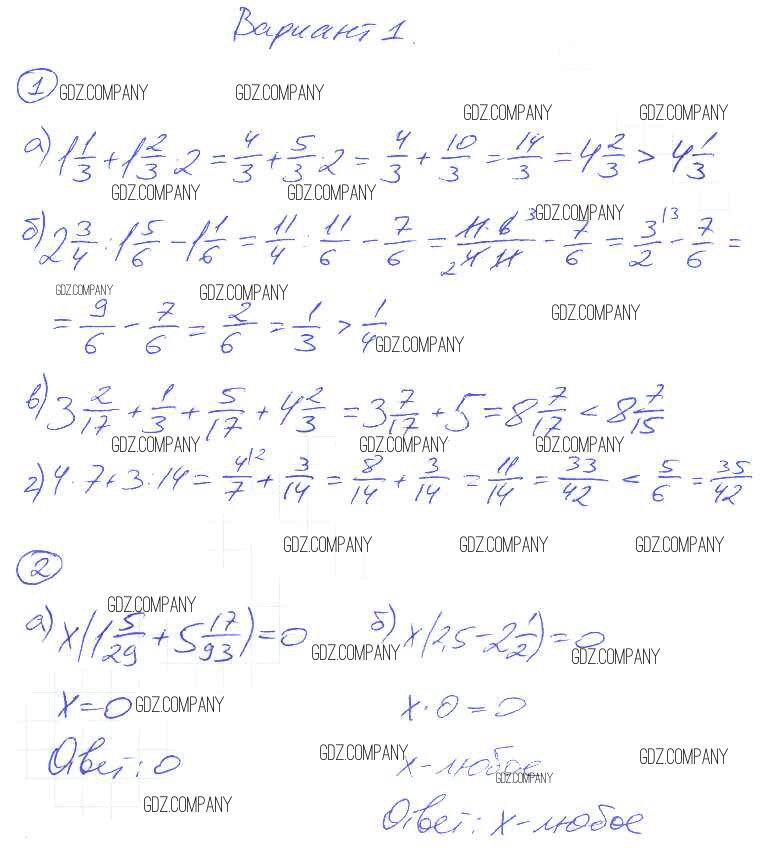 Вариант 1.
1 GDZ.COMPANY GDZ.COMPANY GDZ.COMPANY GDZ.COMPANY
а) 1 1/3 + 1 2/3 · 2 = 4/3 + 5/3 · 2 = 4/3 + 10/3 = 14/3 = 4 2/3 > 4 1/3
GDZ.COMPANY GDZ.COMPANY GDZ.COMPANY
б) 2 3/4 : 1 5/6 - 1 1/6 = 11/4 : 11/6 - 7/6 = 11·6 3/2 4·11 - 7/6 = 3/2 |3 - 7/6 =
GDZ.COMPANY GDZ.COMPANY GDZ.COMPANY
= 9/6 - 7/6 = 2/6 = 1/3 > 1/4
GDZ.COMPANY
в) 3 2/17 + 1/3 + 5/17 + 4 2/3 = 3 7/17 + 5 = 8 7/17 < 8 7/15
GDZ.COMPANY GDZ.COMPANY GDZ.COMPANY
г) 4 · 7 + 3 : 14 = 4/7 |2 + 3/14 = 8/14 + 3/14 = 11/14 = 33/42 < 5/6 = 35/42
GDZ.COMPANY GDZ.COMPANY GDZ.COMPANY
2
GDZ.COMPANY
а) x(1 5/29 + 5 17/93) = 0 б) x(2,5 - 2 1/2) = 0
GDZ.COMPANY GDZ.COMPANY
x = 0 GDZ.COMPANY x · 0 = 0
Ответ: 0 GDZ.COMPANY x - любое GDZ.COMPANY
GDZ.COMPANY
GDZ.COMPANY Ответ: x - любое